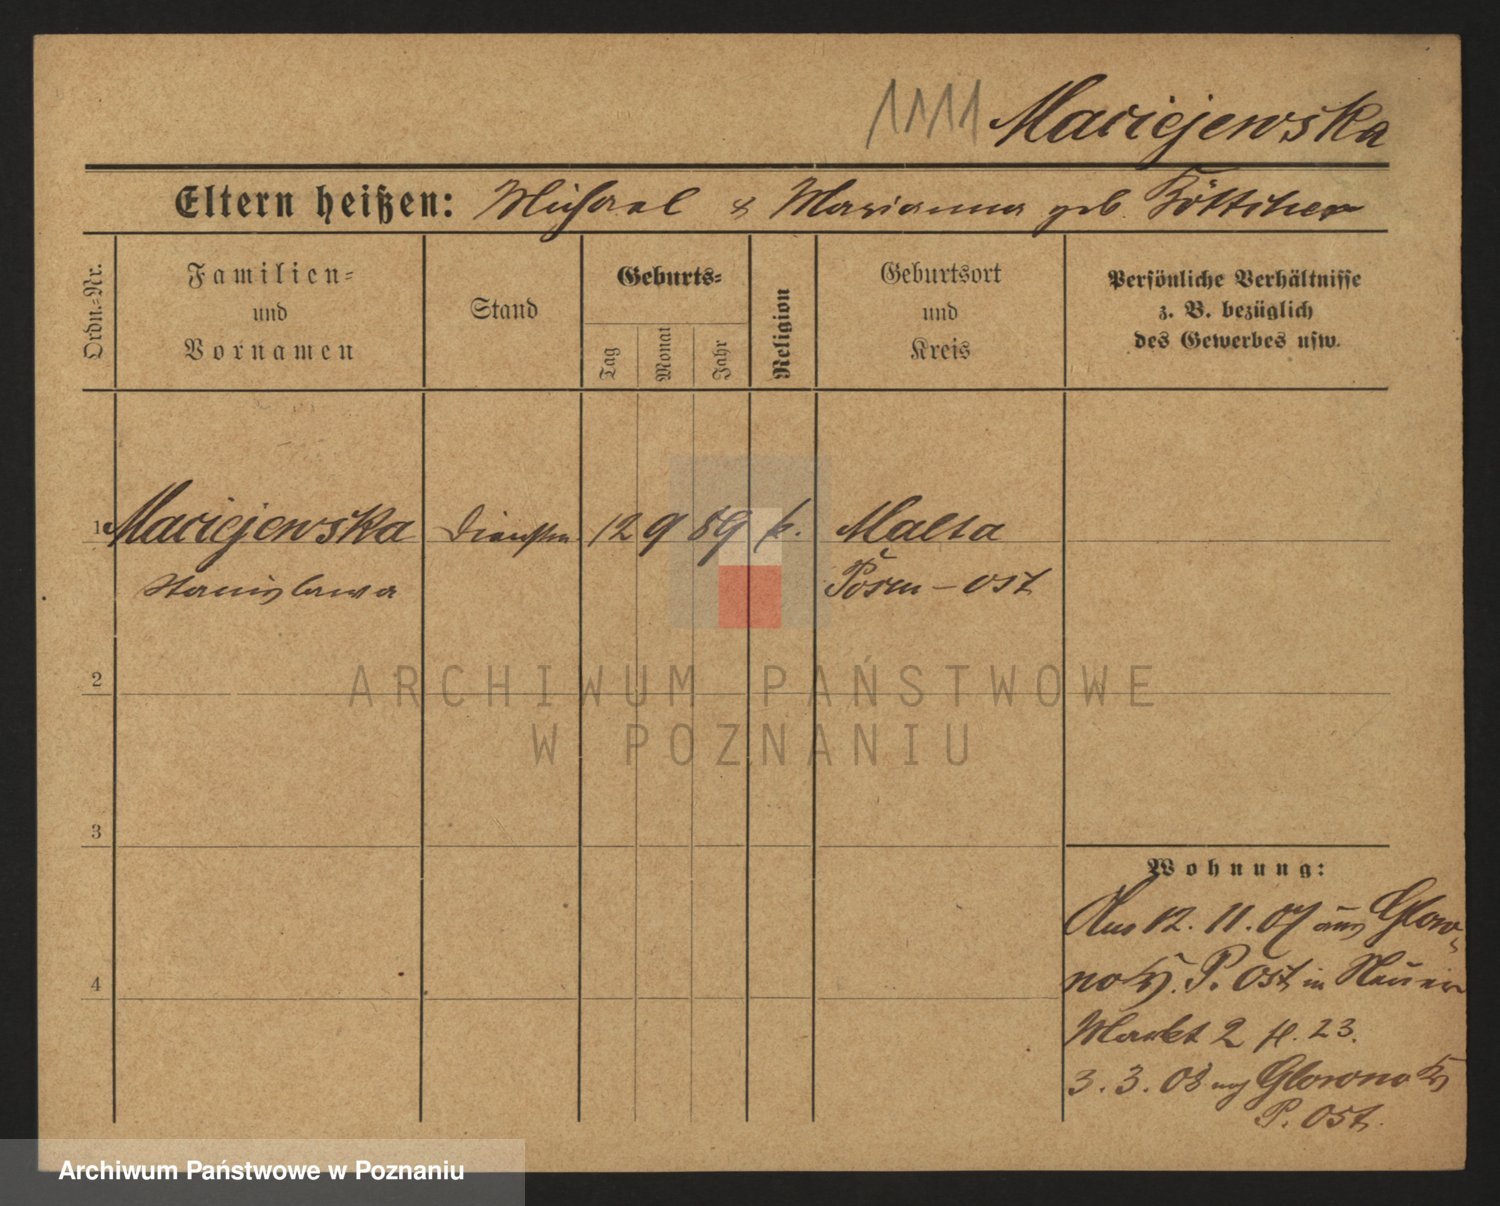 1111 Maciejewska
Eltern heißen: Michael & Marianna geb. Böttcher
Ordn.-Nr.
Familien-
und
Vornamen
Stand
Geburts-
Tag
Monat
Jahr
Religion
Geburtsort
und
Kreis
Persönliche Verhältnisse
z. B. bezüglich
des Gewerbes usw.
1 Maciejewska 12 9 89 k. Malta
Stanislawa Posen-Ost
2
ARCHIWUM PAŃSTWOWE
W POZNANIU
3
Wohnung:
12.11.07 aus Glow-
no Ks. P. Ost in Neuer
4
Markt 2 pt. 23.
3.3.08 nach Glowno Ks
P. Ost.
Archiwum Państwowe w Poznaniu